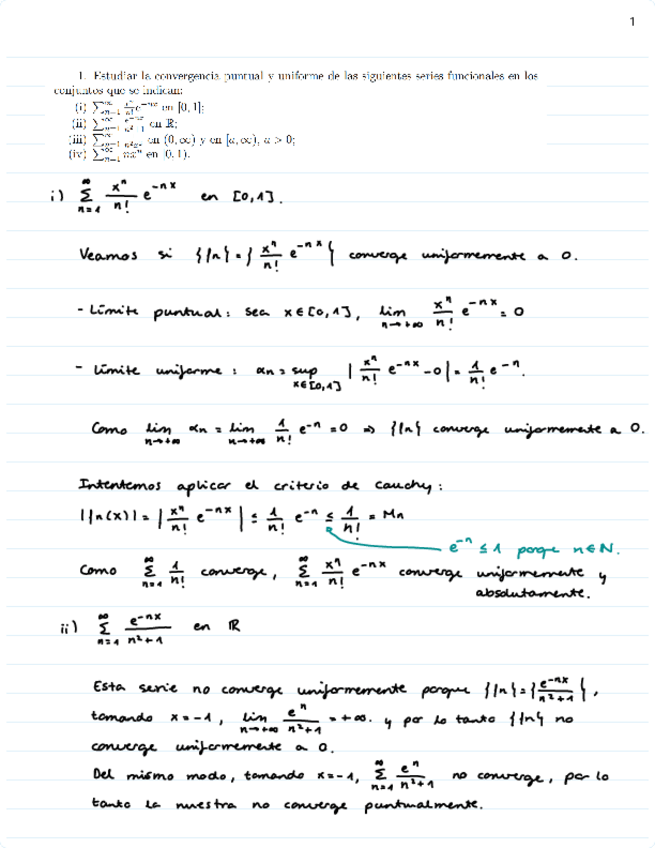 1
1. Estudiar la convergencia puntual y uniforme de las siguientes series funcionales en los
conjuntos que se indican:
(i) ∑_{n=1}^{∞} x^n/n! e^{-nx} en [0, 1];
(ii) ∑_{n=1}^{∞} e^{-nx}/n²+1 en ℝ;
(iii) ∑_{n=1}^{∞} en (0, ∞) y en [a, ∞), a > 0;
(iv) ∑_{n=1}^{∞} nx^n en (0, 1).
i) ∑_{n=1}^{∞} x^n/n! e^{-nx} en [0,1].
Veamos si {fn} = {x^n/n! e^{-nx}} converge uniformemente a 0.
- Límite puntual: sea x∈[0,1], lim_{n→+∞} x^n/n! e^{-nx} = 0
- Límite uniforme: αn = sup_{x∈[0,1]} | x^n/n! e^{-nx} - 0 | = 1/n! e^{-n}.
Como lim_{n→+∞} αn = lim_{n→+∞} 1/n! e^{-n} = 0 ⇒ {fn} converge uniformemente a 0.
Intentemos aplicar el criterio de cauchy:
|fn(x)| = | x^n/n! e^{-nx} | ≤ 1/n! e^{-n} ≤ 1/n! = Mn
e^{-n} ≤ 1 porque n∈N.
Como ∑_{n=1}^{∞} 1/n! converge, ∑_{n=1}^{∞} x^n/n! e^{-nx} converge uniformemente y
absolutamente.
ii) ∑_{n=1}^{∞} e^{-nx}/n²+1 en ℝ
Esta serie no converge uniformemente porque {fn} = {e^{-nx}/n²+1},
tomando x = -1, lim_{n→+∞} e^n/n²+1 = +∞. y por lo tanto {fn} no
converge uniformemente a 0.
Del mismo modo, tomando x = -1, ∑_{n=1}^{∞} e^n/n²+1 no converge, por lo
tanto la nuestra no converge puntualmente.